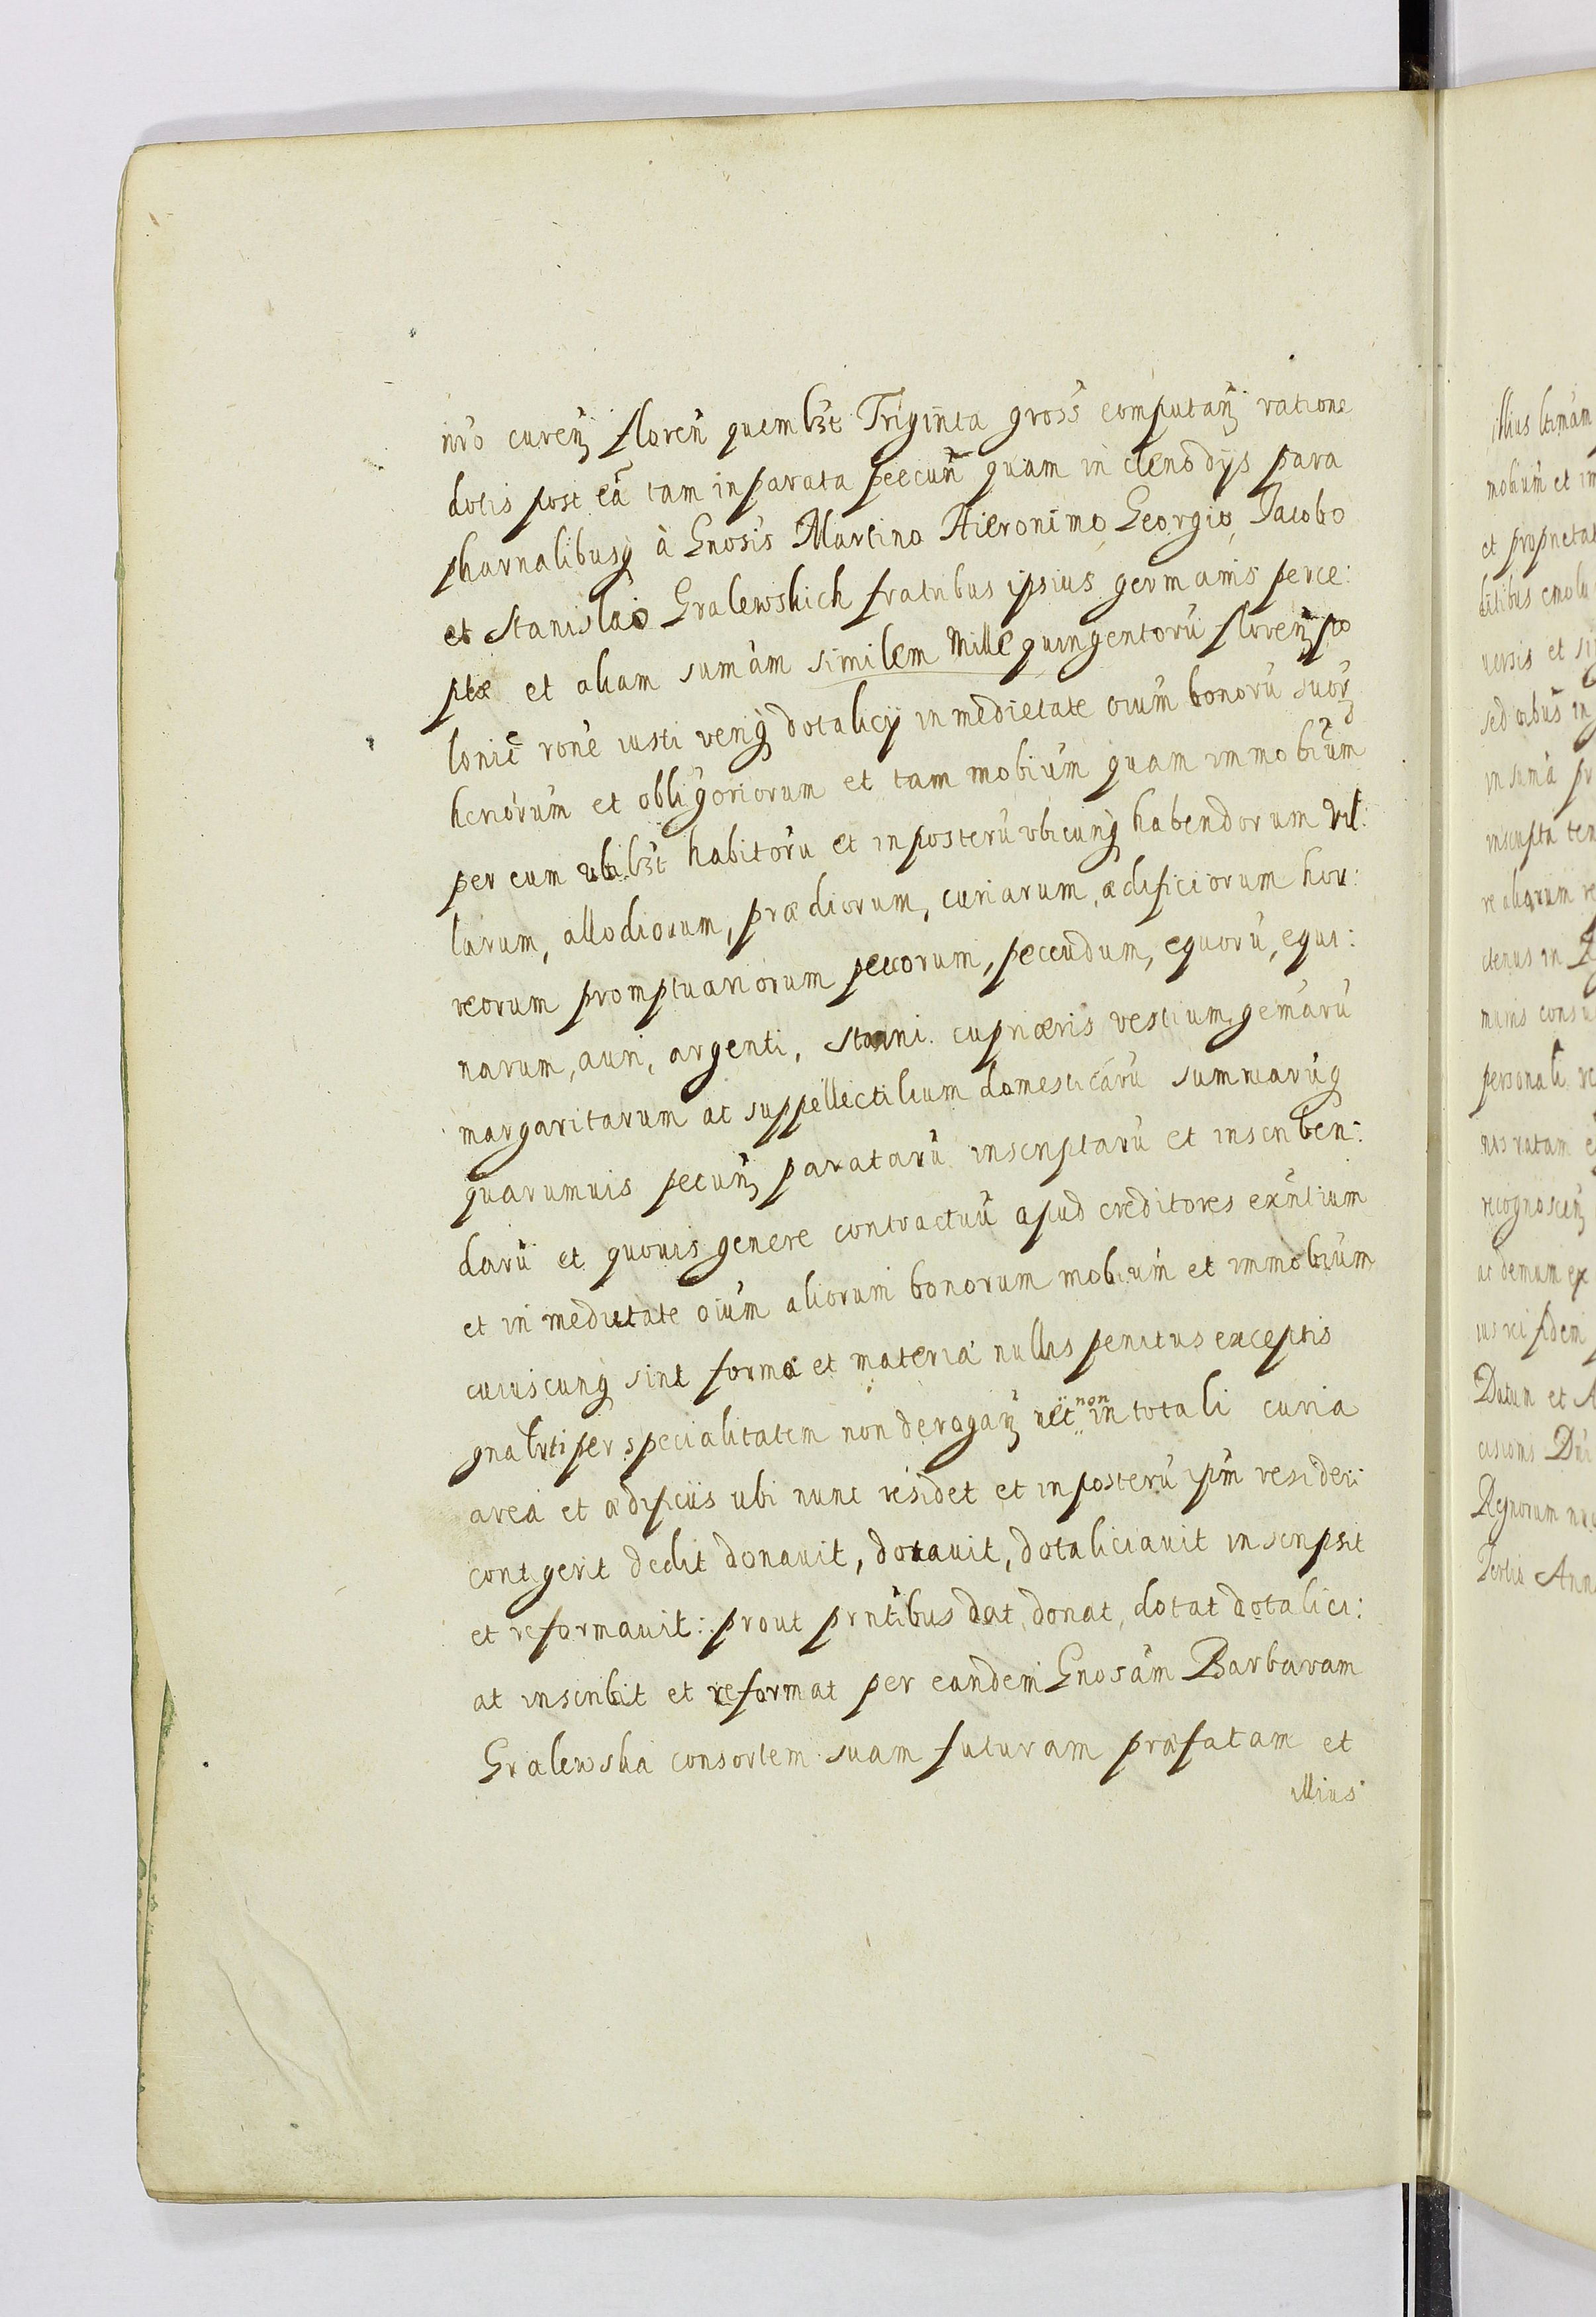 nro curen floren quemlbt Triginta gross computan ratione
dotis post eā tam in parata peecun̄ quam in clenodÿs para
pharnalibusq à Gnosis Martino Hieronimo Georgio, Jacobo
et Stanislao Gralewskich fratribus ipsius germanis perce:
ptæ et aliam sumam similem Mille quingentorū floren po
lonic rone iusti veriq dotalicÿ in medietate oium bonorū suor
heriorum et obligoriorum et tam mobium quam immobium
per eum ubilbt habitorū et in posterū ubicunq habendorum vil:
larum, allodiorum, prædiorum, curiarum, ædificiorum hor:
reorum promptuariorum peccorum, peccudum, equorū, equi:
narum, auri, argenti, stanni. cupri æris vestium, gemarū
margaritarum ac suppellectilium domesticarū summarūq
quarumuis pecun paratarū inscriptarū et inscriben:
darū et quouis genere contractuū apud creditores exntium
et in medietate oium aliorum bonorum mobium et immobium
cuiuscunq sint forma et materia nullis penitus exceptis
gnalvti per specialitatem non derogan nec non in totali curia
area et ædificiis ubi nunc residet et in posterū ipm resideri
contigerit dedit donauit, dotauit, dotaliciauit inscripsit
et reformauit: prout prntibus dat, donat, dotat dotalici:
at inscribit et reformat per eandem Gnosam Barbaram
Gralewska consortem suam futuram præfatam et
illius

illius
mobium et
et proprietat
versis et
in suma
inscripta
re aliarum
personali
ratam
recognoscen
ac demum ex
ius rei fidem
Datum et
Regnorum
Tertio Ann